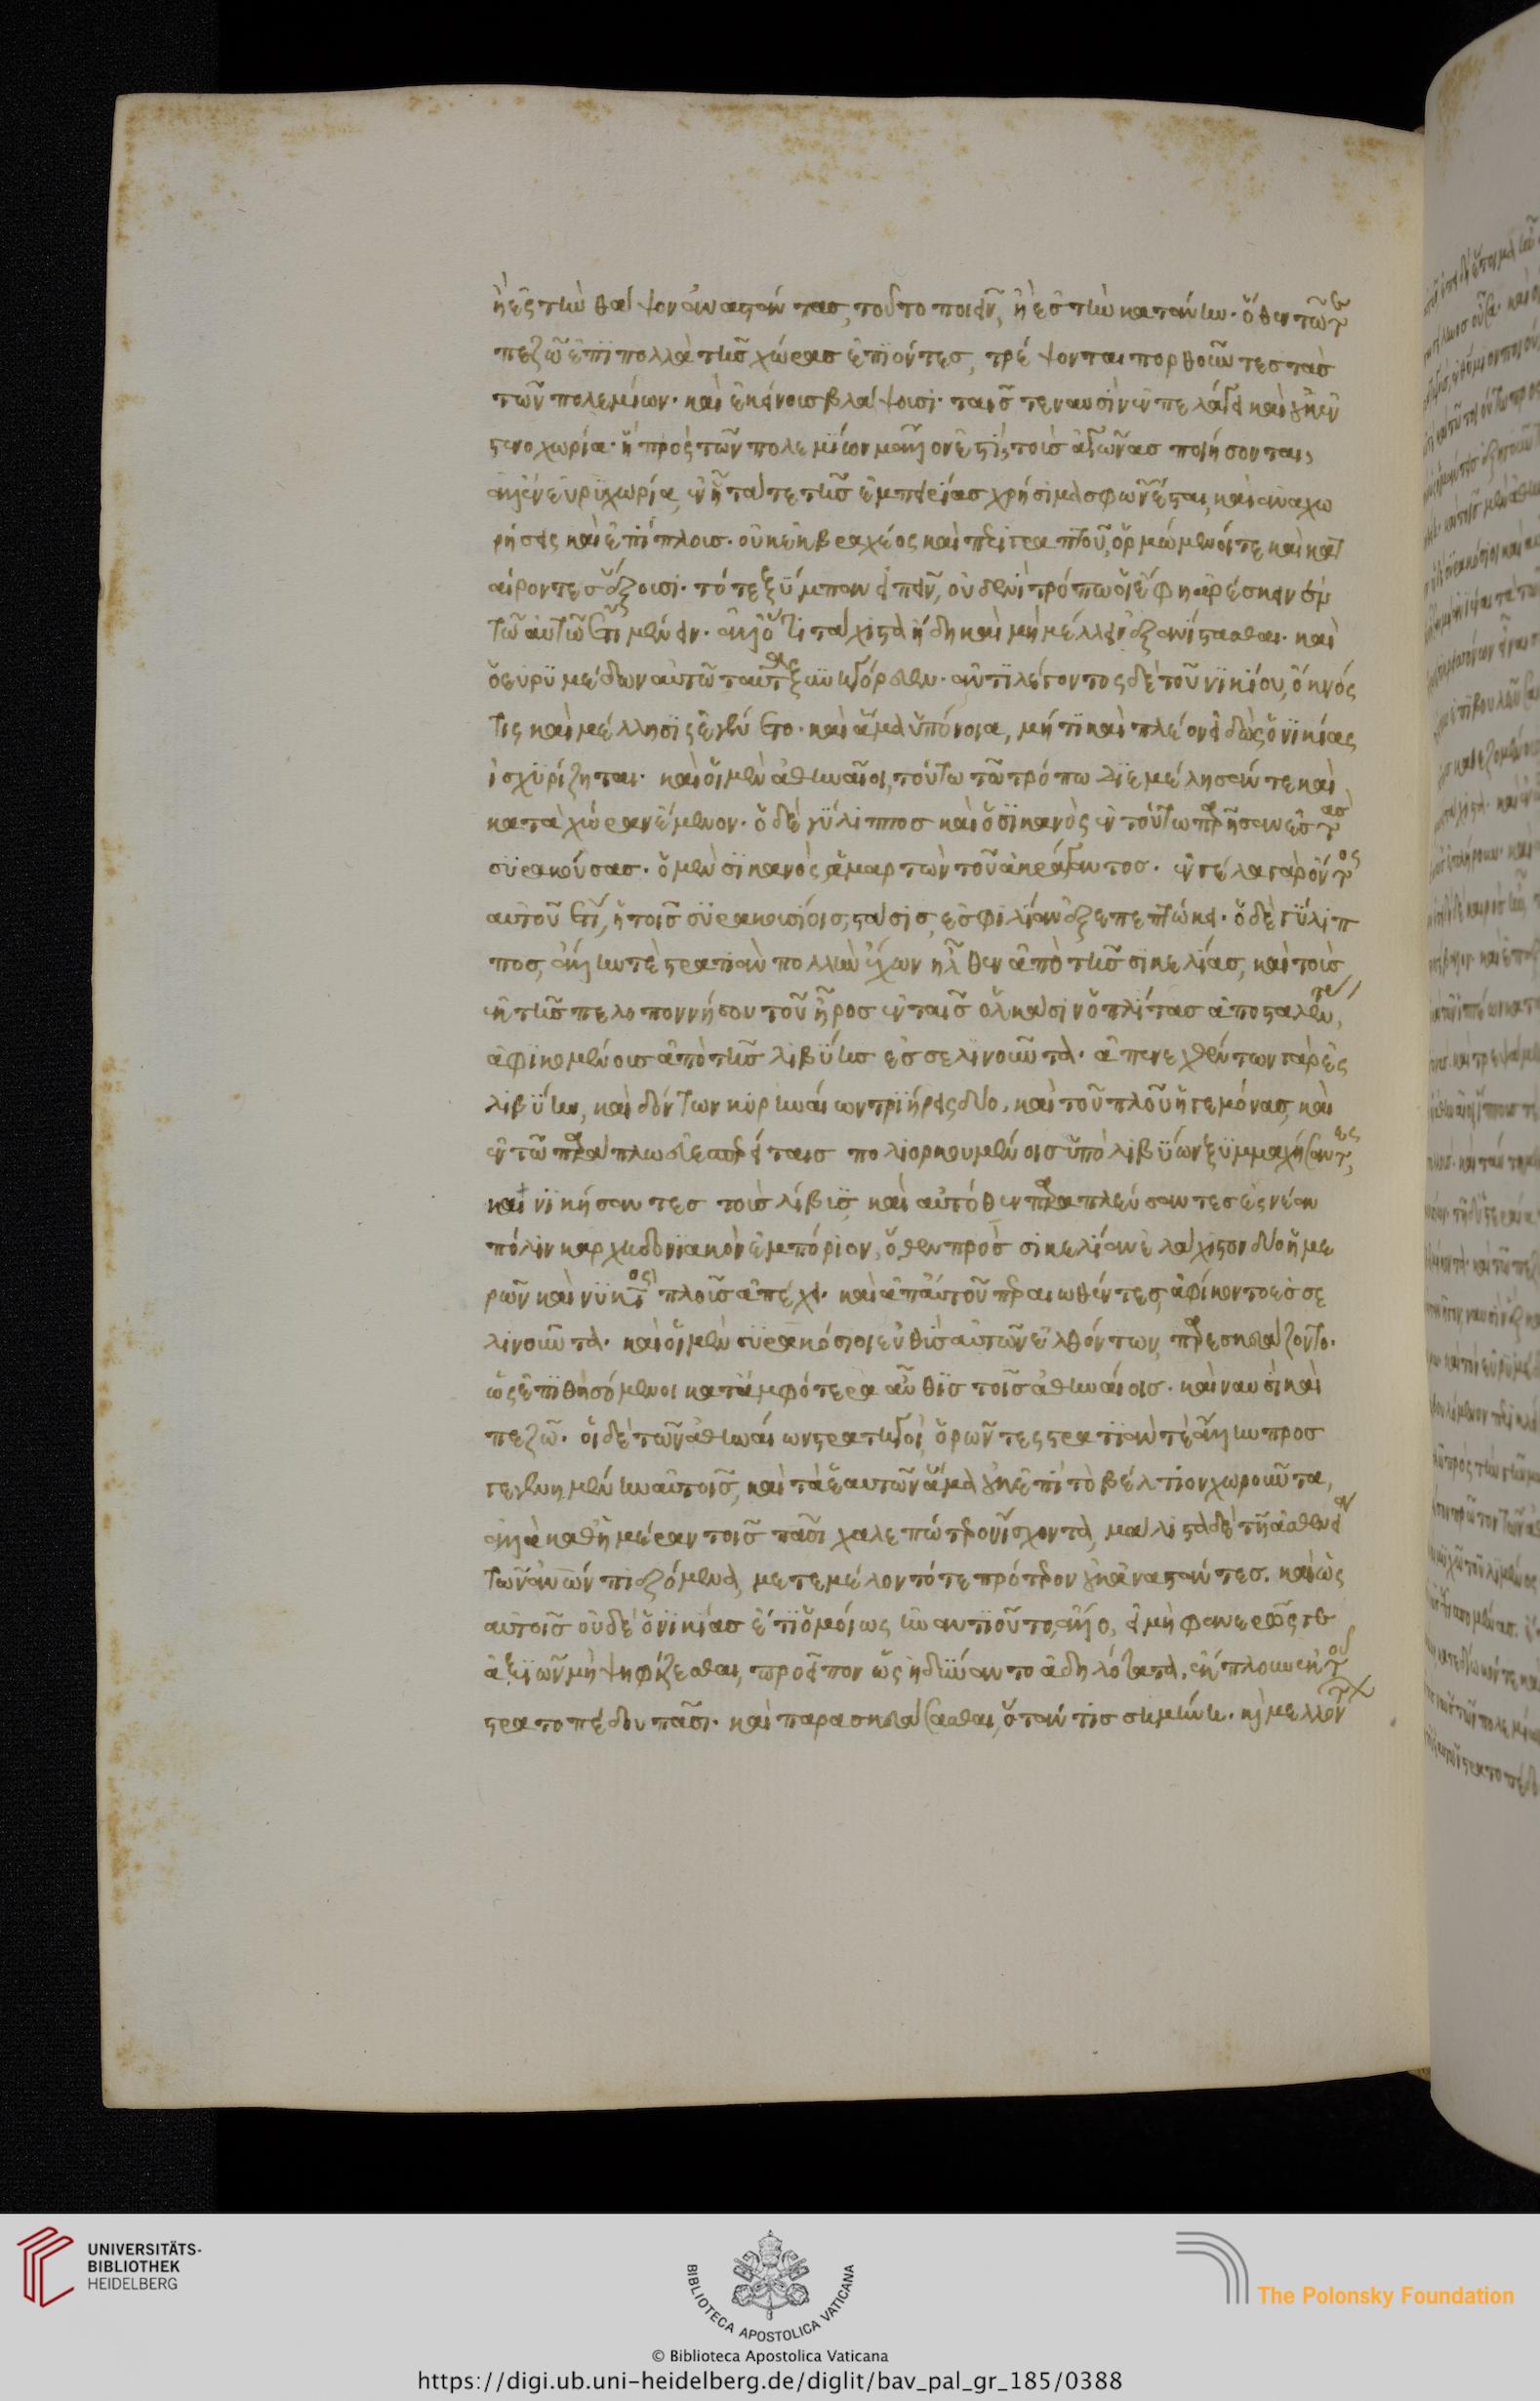 ἢ ἐς τὴν θάψον ἀναστάντας, τοῦτο ποιεῖν, ἢ ἐς τὴν κατάνην. ὅθεν τῶ τε
πεζῶ ἐπὶ πολλὰ τῆς χώρας ἐπιόντες, τρέψονται πορθοῦντες τὰς
τῶν πολεμίων. καὶ ἐκείνους βλάψουσι. ταῖς τε ναυσὶν ἐν πελάγει καὶ οὐκ ἐν
στενοχωρία. ἣ πρὸς τῶν πολεμίων μᾶλλον ἐστὶ, τοὺς ἀγῶνας ποιήσονται,
ἀλλ' ἐν εὐρυχωρία, ἐν ἧ τά τε τῆς ἐμπειρίας χρήσιμα σφῶν ἔσται, καὶ ἀναχω
ρήσεις καὶ ἐπίπλους. οὐκ ἐκ βραχέος καὶ περιγραπτοῦ, ὁρμώμενοί τε καὶ κατ
αίροντες ἕξουσι. τό τε ξύμπαν εἰπεῖν, οὐδενὶ τρόπω οἱ ἔφη ἀρέσκειν ἐν
τῶ αὐτῶ ἔτι μένειν. ἀλλ' ὅτι τάχιστα ἤδη καὶ μὴ μέλλειν ἐξανίστασθαι. καὶ
ὁ εὐρυμέδων αὐτῶ ταῦτα ξυνηγόρευεν. ἀντιλέγοντος δὲ τοῦ νικίου, ὄκνός
τις καὶ μέλλησις ἐγένετο. καὶ ἅμα ὑπόνοια, μή τι καὶ πλέον εἰδὼς ὁ νικίας
ἰσχυρίζηται. καὶ οἱ μὲν ἀθηναῖοι, τούτω τῶ τρόπω διεμέλησάν τε καὶ
κατὰ χώραν ἔμενον. ὁ δὲ γύλιππος καὶ ὁ σικανὸς ἐν τούτω παρῆσαν ἐς τὰς
συρακούσας. ὁ μὲν σικανὸς, ἁμαρτὼν τοῦ ἀκράγαντος. ἐν γέλα γὰρ ὄντος
αὐτοῦ ἔτι, ἡ τοῖς συρακουσίοις στάσις, ἐς φιλίαν ἐξεπεπτώκει. ὁ δὲ γύλιπ
πος, ἄλλην τε στρατιὰν πολλὴν ἔχων ἦλθεν ἀπὸ τῆς σικελίας, καὶ τοὺς
ἐκ τῆς πελοποννήσου τοῦ ἦρος ἐν ταῖς ὁλκάσιν ὁπλίτας ἀποσταλέντας,
ἀφικομένους ἀπὸ τῆς λιβύης ἐς σελινοῦντα. ἀπενεχθέντων γὰρ ἐς
λιβύην, καὶ δόντων κυρηναίων τριήρεις δύο, καὶ τοῦ πλοῦ ἡγεμόνας, καὶ
ἐν τῶ παράπλω εὐεσπερίταις πολιορκουμένοις ὑπὸ λιβύων ξυμμαχήσαντες,
καὶ νικήσαντες τοὺς λίβυς, καὶ αὐτόθεν παραπλεύσαντες ἐς νέαν
πόλιν καρχηδονιακὸν ἐμπόριον, ὅθεν πρὸς σικελίαν ἐλάχιστον δύο ἡμε
ρῶν καὶ νυκτὸς πλοῦς ἀπέχει. καὶ ἀπ' αὐτοῦ περαιωθέντες, ἀφίκοντο ἐς σε
λινοῦντα. καὶ οἱ μὲν συρακόσιοι εὐθὺς αὐτῶν ἐλθόντων, παρεσκευάζοντο.
ὡς ἐπιθησόμενοι κατ' ἀμφότερα αὖθις τοῖς ἀθηναίοις. καὶ ναυσὶ καὶ
πεζῶ. οἱ δὲ τῶν ἀθηναίων στρατηγοί, ὁρῶντες στρατιάν τε ἄλλην προσ
γεγενημένην αὐτοῖς, καὶ τὰ ἑαυτῶν ἅμα οὐκ ἐπὶ τὸ βέλτιον χωροῦντα,
ἀλλὰ καθ' ἡμέραν τοῖς πᾶσι χαλεπώτερον ἴσχοντα, μάλιστα δὲ τῆ ἀσθενεία
τῶν ἀνων πιεζόμενα, μετεμέλοντό τε πρότερον οὐκ ἀναστάντες. καὶ ὡς
αὐτοῖς οὐδὲ ὁ νικίας ἔτι ὁμοίως ἠναντιοῦτο, ἀλλ' ὁ, εἰ μὴ φανερῶς γε
ἀξιῶν μὴ ψηφίζεσθαι, προεῖπον ὡς ἠδύναντο ἀδηλότατα, ἔκπλουν ἐκ τοῦ
στρατοπέδου πᾶσι. καὶ παρασκευάσασθαι, ὅταν τις σημήνη. καὶ μελλόντων
UNIVERSITÄTS-
BIBLIOTHEK
HEIDELBERG
BIBLIOTECA APOSTOLICA VATICANA
The Polonsky Foundation
© Biblioteca Apostolica Vaticana
https://digi.ub.uni-heidelberg.de/diglit/bav_pal_gr_185/0388